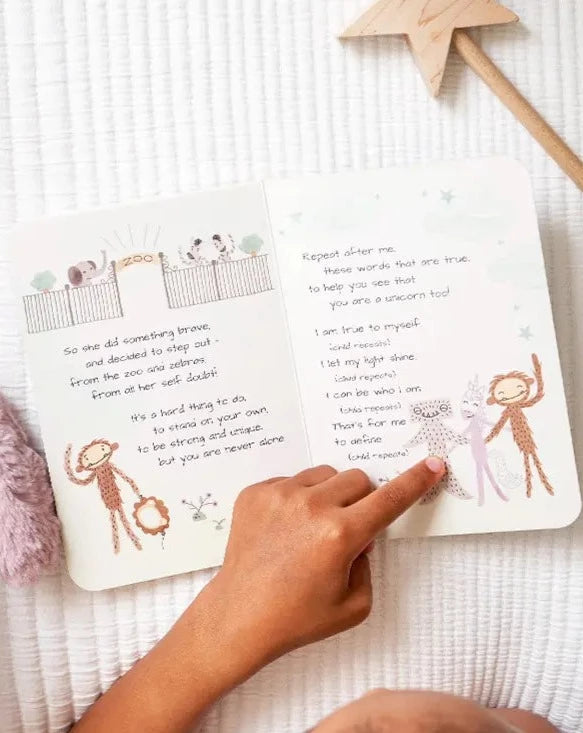 ZOO
So she did something brave,
and decided to step out -
from the zoo and zebras,
from all her self doubt!
It's a hard thing to do,
to stand on your own,
to be strong and unique,
but you are never alone
Repeat after me,
these words that are true,
to help you see that
you are a unicorn too!
I am true to myself
(child repeats)
I let my light shine.
(child repeats)
I can be who i am.
(child repeats)
That's for me
to define
(child repeats)